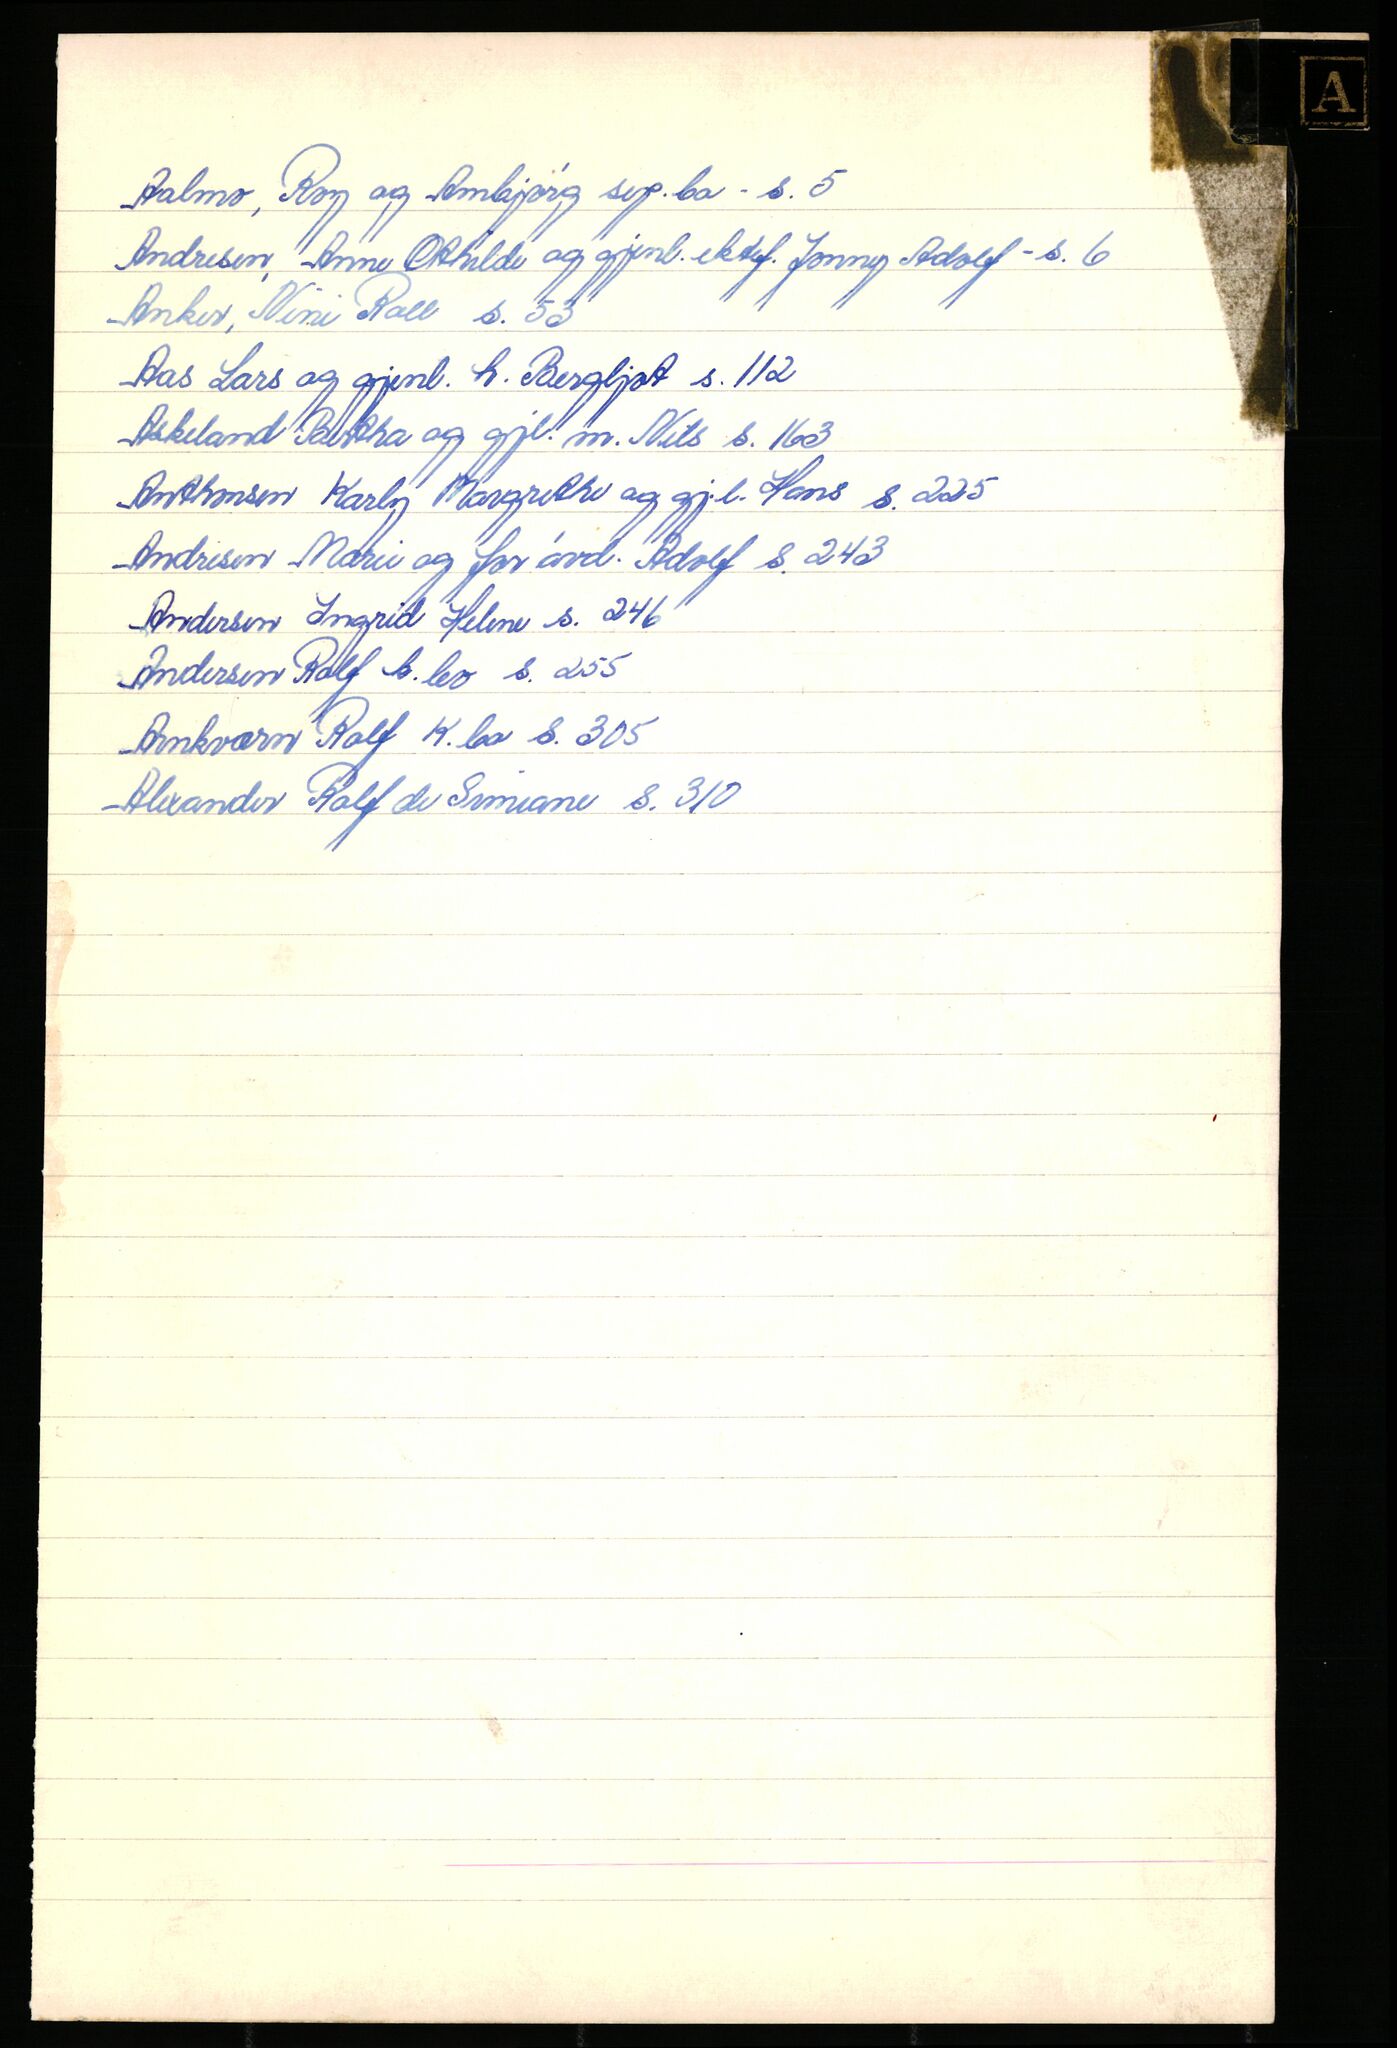 A
Aalmo, Roy og Ambjörg sep.bo - s. 5
Andresen, Anne Othilde og gjenl. ektef. Jonny Adolf - s. 6
Anker, Nini Roll s. 53
Aas Lars og gjenl. h. Bergljot s. 112
Askeland Bertha og gjl. m. Nils s. 163
Anthonsen Karly Margrethe og gj.l. Hans s. 225
Andresen Marie og før avd. Adolf s. 243
Andersen Ingrid Helene s. 246
Andersen Ralf k. bo s. 255
Arnkværn Rolf K. bo s. 305
Alexander Ralf de Simiane s. 310